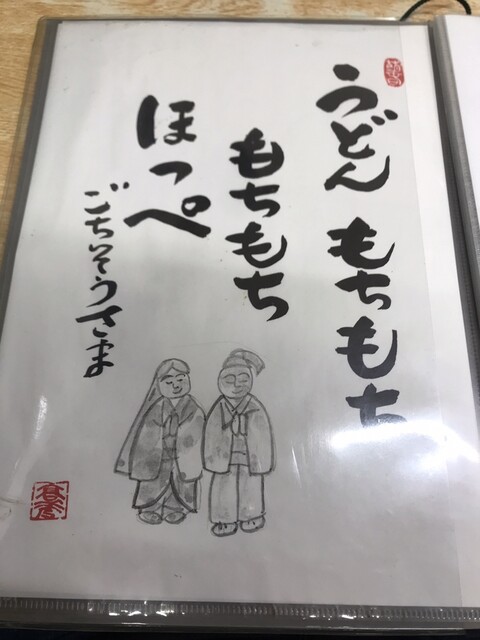 うどん もちもち
もちもち
ほっぺ
ごちそうさま